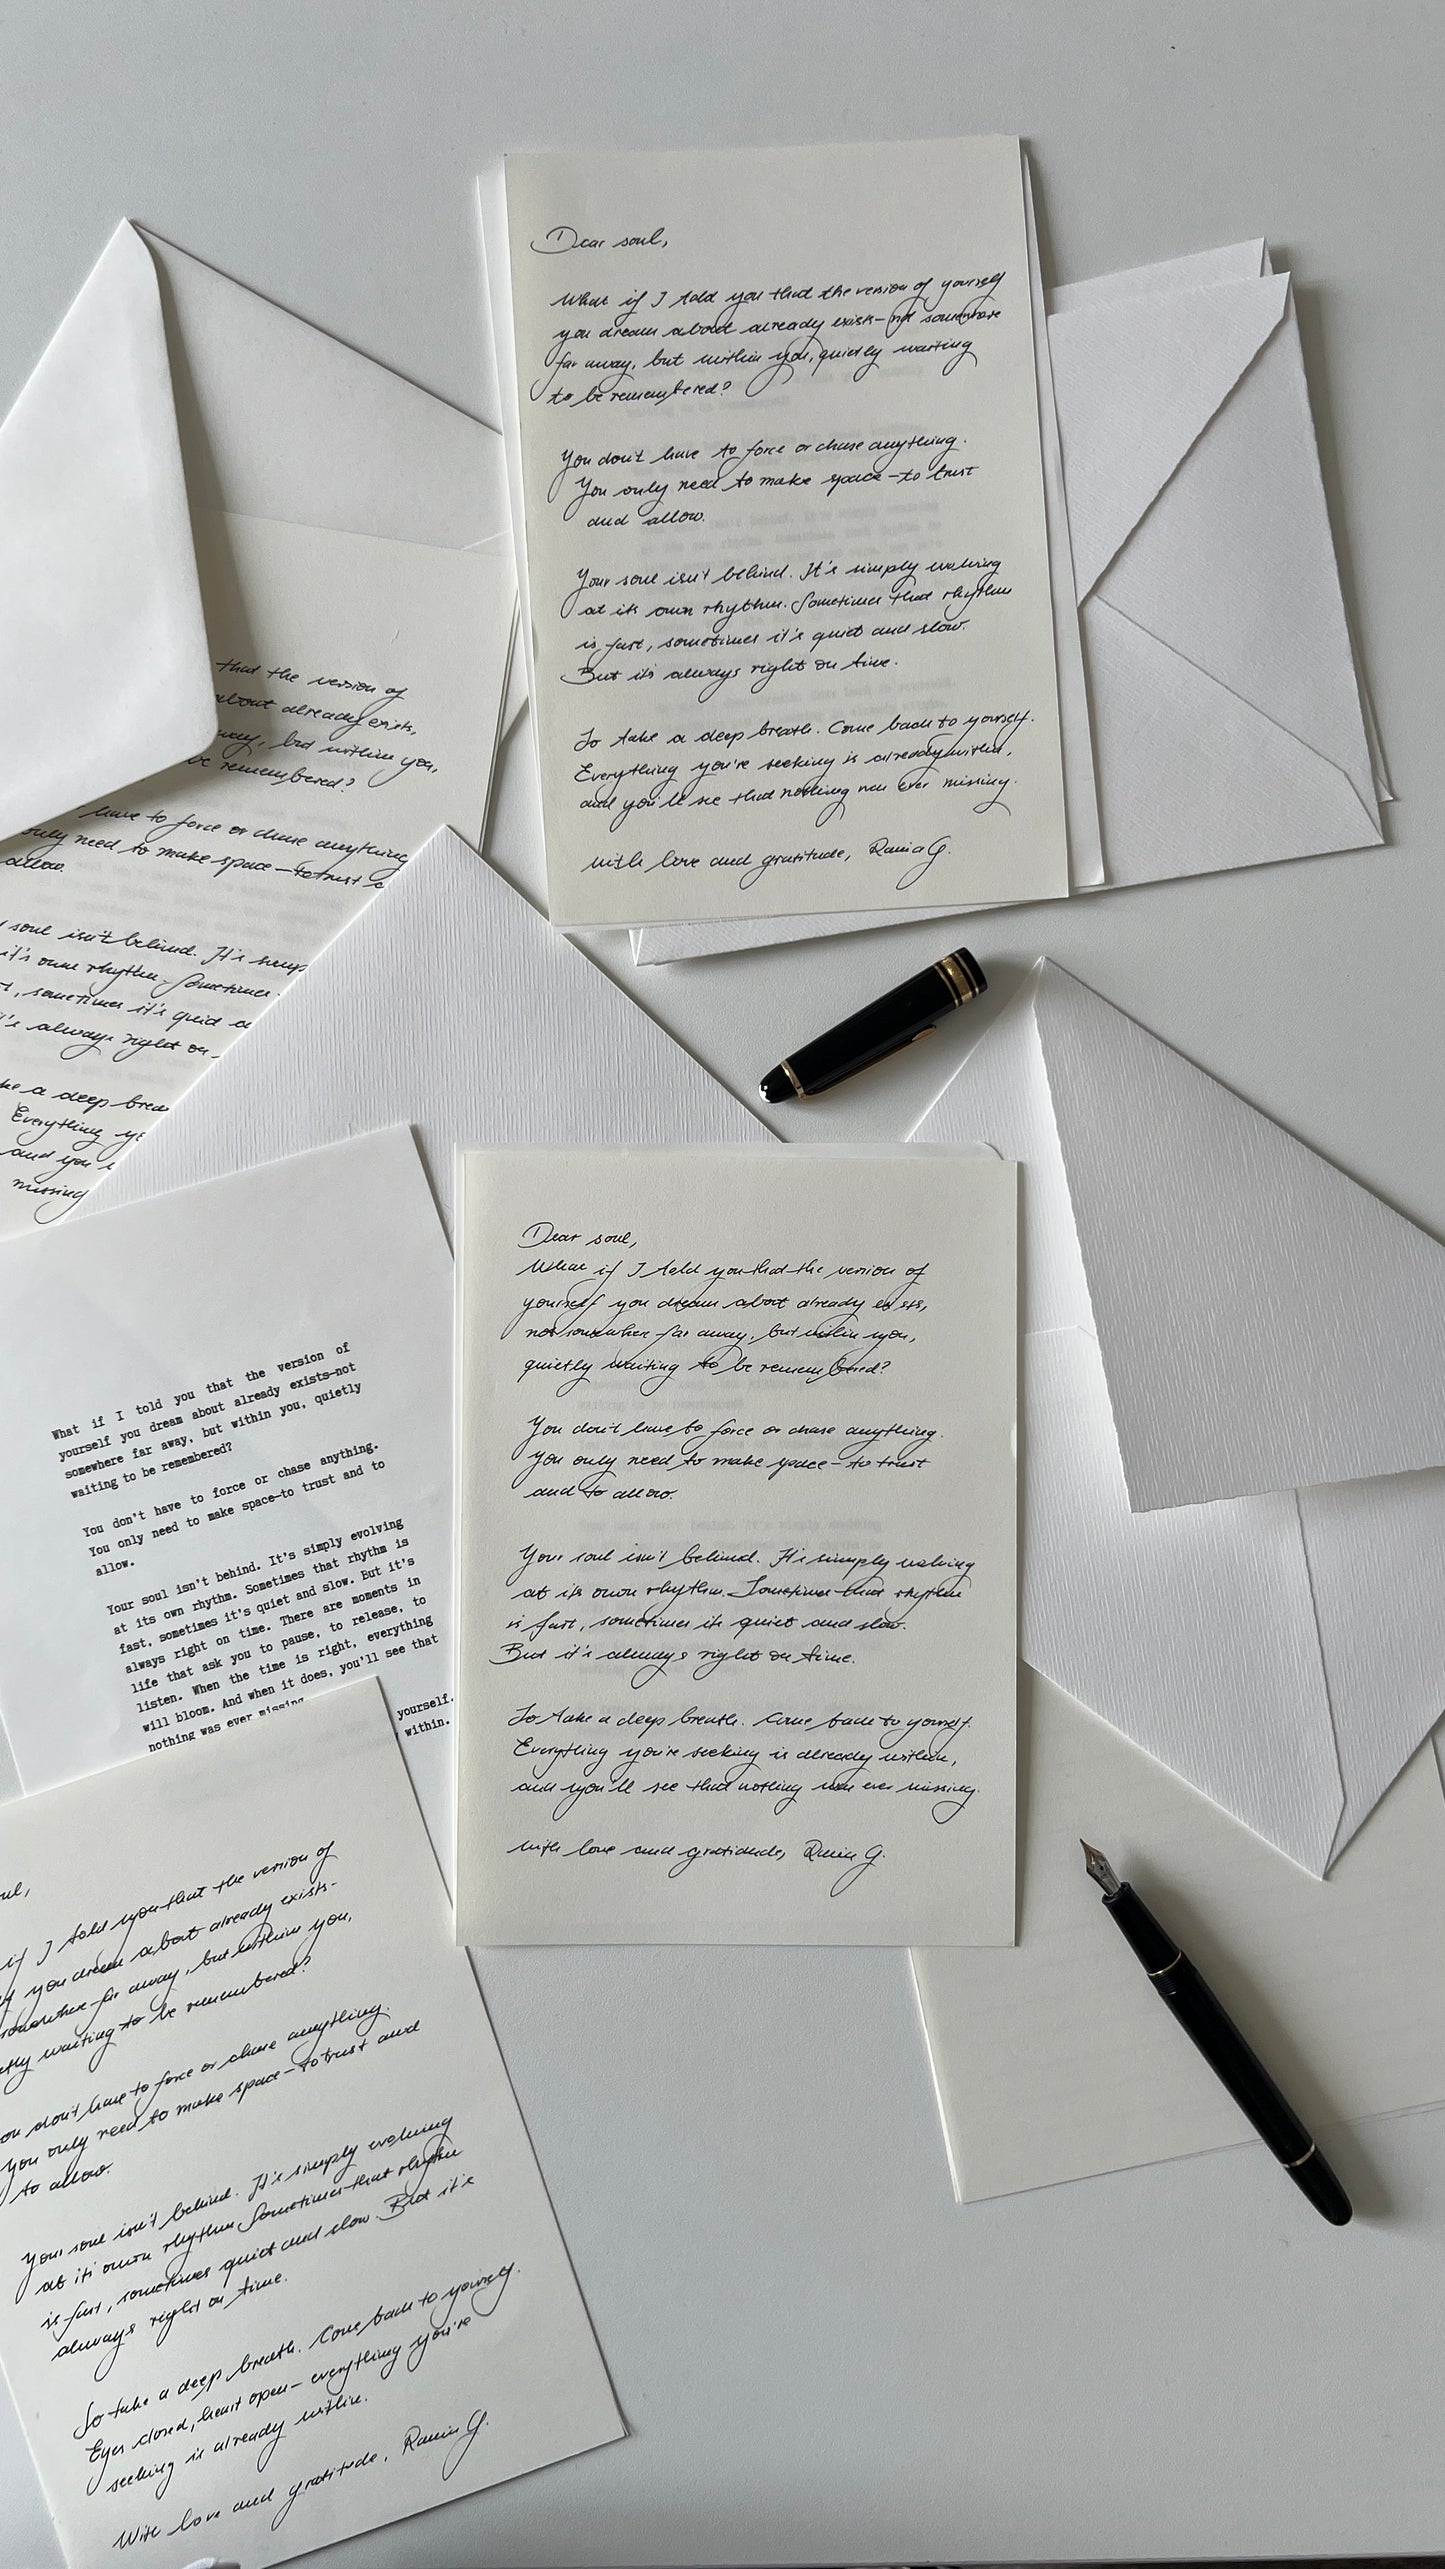 Dear soul,
What if I told you that the version of yourself
you dream about already exists-not somewhere
far away, but within you, quietly waiting
to be remembered?
You don't have to force or chase anything.
You only need to make space-to trust
and allow.
Your soul isn't behind. It's simply evolving
at its own rhythm. Sometimes that rhythm
is fast, sometimes it's quiet and slow.
But it's always right on time.
So take a deep breath. Come back to yourself.
Everything you're seeking is already within,
and you'll see that nothing was ever missing.
with love and gratitude, Rania G.
that the version of
about already exists,
away, but within you,
be remembered?
have to force or chase anything
only need to make space-to trust
allow.
soul isn't behind. It's
it's own rhythm. Sometimes
, sometimes it's quiet
it's always right on
a deep
Everything
and you
missing
What if I told you that the version of
yourself you dream about already exists-not
somewhere far away, but within you, quietly
waiting to be remembered?
You don't have to force or chase anything.
You only need to make space-to trust and to
allow.
Your soul isn't behind. It's simply evolving
at its own rhythm. Sometimes that rhythm is
fast, sometimes it's quiet and slow. But it's
always right on time. There are moments in
life that ask you to pause, to release, to
listen. When the time is right, everything
will bloom. And when it does, you'll see that
nothing was ever missing
yourself.
within.
Dear soul,
What if I told you that the version of
yourself you dream about already exists,
not somewhere far away, but within you,
quietly waiting to be remembered?
You don't have to force or chase anything.
You only need to make space-to trust
and to allow.
Your soul isn't behind. It's simply evolving
at its own rhythm. Sometimes that rhythm
is fast, sometimes its quiet and slow.
But it's always right on time.
So take a deep breath. Come back to yourself.
Everything you're seeking is already within,
and you'll see that nothing was ever missing.
with love and gratitude, Rania G.
if I told you that the version of
you dream about already exists-
somewhere far away, but within you,
waiting to be remembered?
don't have to force or chase anything.
You only need to make space-to trust and
to allow.
Your soul isn't behind. It's simply evolving
at its own rhythm. Sometimes that rhythm
is fast, sometimes quiet and slow. But it's
always right on time.
So take a deep breath. Come back to yourself.
Eyes closed, heart open-everything you're
seeking is already within.
With love and gratitude, Rania G.